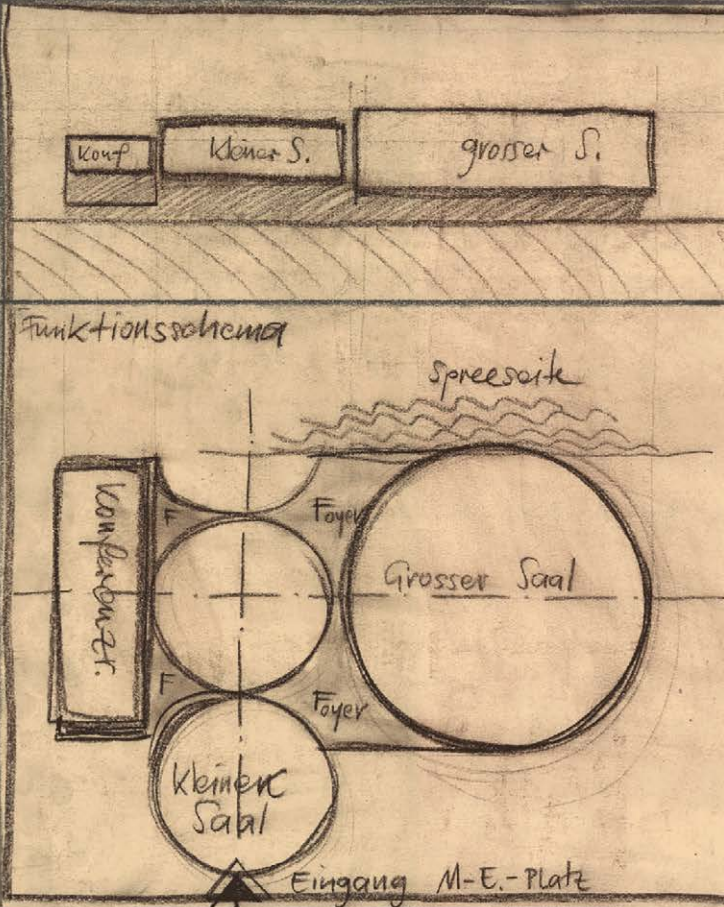 Konf
kleiner S.
grosser S.
Funktionsschema
Spreeseite
Konferenzr.
F
Foyer
Grosser Saal
F
Foyer
Kleiner
Saal
Eingang M-E.-Platz